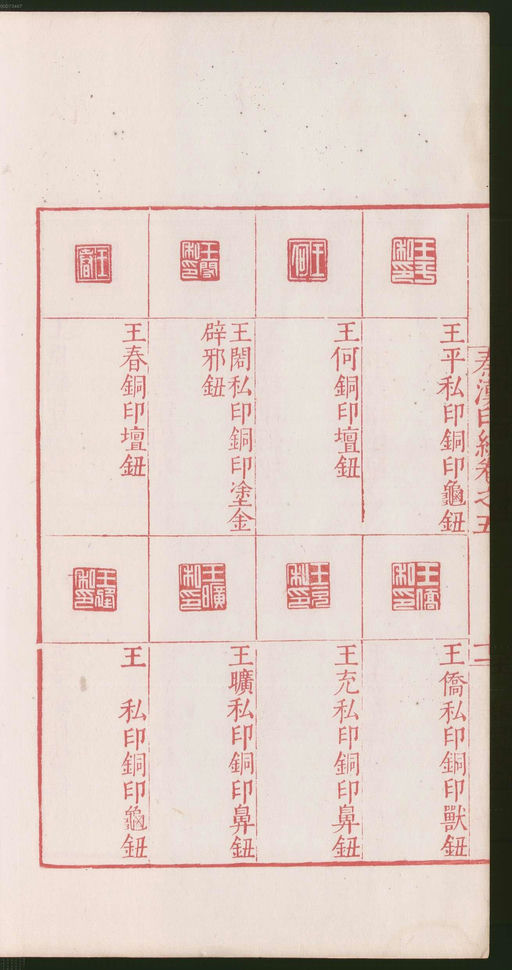 秦漢印統卷之五
二
王平私印銅印龜鈕
王何銅印壇鈕
王閎私印銅印塗金
辟邪鈕
王春銅印壇鈕
王僑私印銅印獸鈕
王充私印銅印鼻鈕
王曠私印銅印鼻鈕
王　私印銅印龜鈕